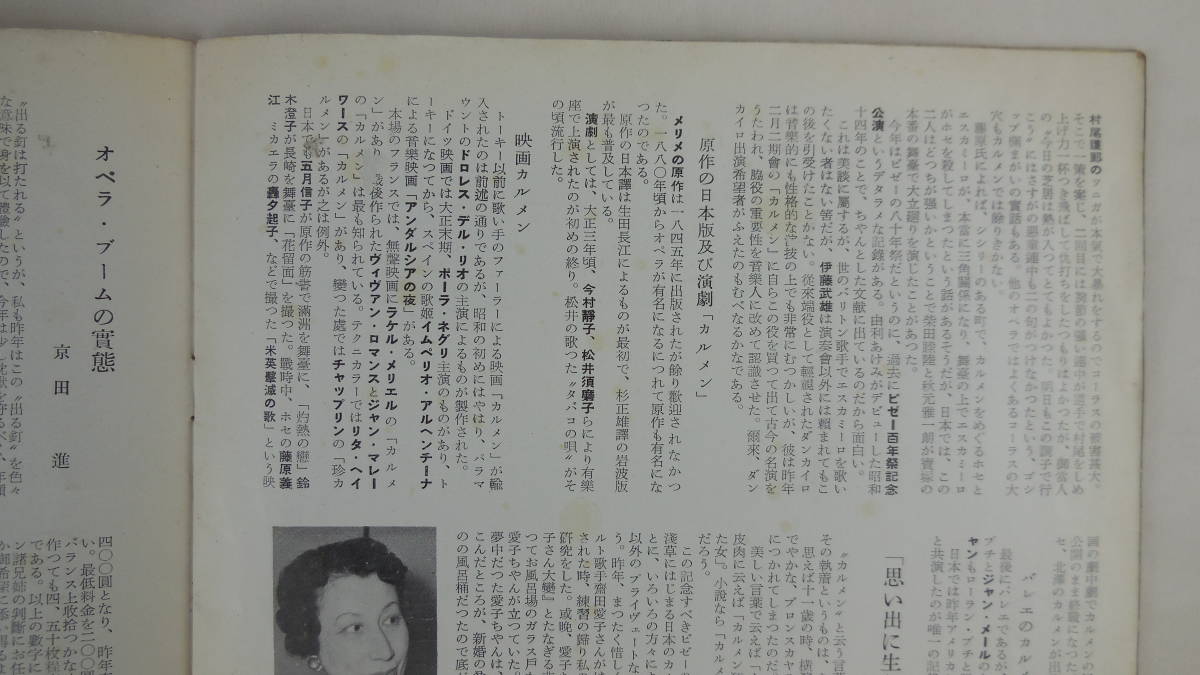 村尾護郎のツニガが本氣で大暴れをするのでコーラスの被害甚大。
そこで一策を案じ、二回目には腕節の強い連中が逆手で村尾をしめ
上げ力一杯つき飛ばして仇討ちをしたつもりはよかったが、御當人
の〝今日の芝居は熱が入つてとてもよかった。明日もこの調子で行
こう〟にはさすがの
穴もカルメンでは餘りきかない。
藤原氏によれば、シシリーのある町で、カルメンをめぐるホセと
エスカミーロが、本當に三角關係になり、舞臺の上でエスカミーロ
がホセを殺してしまつたという話があるそうだが、日本では、この
二人はどつちが强いかということで柴田睦陸と秋元雅一朗が實際の
本番の舞臺で大立廻りを演じたことがあつた。
今年はビゼーの八十年祭だというのに、過去にビゼー百年祭記念
公演というデタラメな記錄がある。由利あけみがデビューした昭和
十四年のことで、ちやんとした文献に出ているのだから面白い。
これは美談に屬するが、世のバリトン歌手でエスカミーロを歌い
たくない者はない筈だが、伊藤武雄は演奏會以外には賴まれてもこ
の役を引受けたことがない。從來端役として輕視されたダンカイロ
は音樂的にも性格的な演技の上でも非常にむつかしいが、彼は昨年
二月二期會の「カルメン」に自らこの役を買つて出て古今の名演を
うたわれ、脇役の重要性を音樂人に改めて認識させた。爾來、ダン
カイロ出演希望者がふえたのもむべなるかなである。
原作の日本版及び演劇「カルメン」
メリメの原作は一八四五年に出版されたが餘り歡迎されなかつ
た。一八八〇年頃からオペラが有名になるにつれて原作も有名にな
つたのである。
原作の日本譯は生田長江によるものが最初で、杉正雄譯の岩波版
が最も普及している。
演劇としては、大正三年頃、今村靜子、松井須磨子らにより有樂
座で上演されたのが初めの終り。松井の歌つた〝タバコの唄〟がそ
の頃流行した。
映画カルメン
トーキー以前に歌い手のファーラーによる映画「カルメン」が輸
入されたのは前述の通りであるが、昭和の初めにはやはり、パラマ
ウントのドロレス・デル・リオの主演によるものが製作された。
ドイツ映画では大正末期、ポーラ・ネグリ主演のものがあり、ト
ーキーになつてから、スペインの歌姬イムペリオ・アルヘンチーナ
による音樂映画「アンダルシアの夜」がある。
本場のフランスでは、無聲映画にラケル・メリエルの「カルメ
ン」があり、最後作られたヴィヴァン・ロマンスとジャン・マレー
の「カルメン」は最も知られている。テクニカラーではリタ・ヘイ
ワースの「カルメン」があり、變つた處ではチャップリンの「珍カ
ルメン」があるが之は例外。
日本でも五月信子が原作の筋書で滿洲を舞臺に、「灼熱の戀」鈴
木澄子が長崎を舞臺に「花留面」を撮つた。戰時中、ホセの藤原義
江 ミカエラの轟夕起子、などで撮つた「米英擊滅の歌」という映
画の劇中劇でカルメンの
公開のまま終戰になつた
せ、北澤のカルメンが出
バレエのカル
最後にバレエであるが
プチとジャン・メールの
ヤンもローラン・プチと
日本では昨年アメリカ
と共演したのが唯一の記
「思い出に生
〝カルメン〟と云う言葉
その執着というものは、
思えば十一歲の時、橫
でやかな、ブロンスカヤ
につかれてしまつたのだ。
美しい言葉で云えば「カ
皮肉に云えば「カルメン
た女」。小說なら「カルメ
だろう。
この記念すべきビゼー
淺草にはじまる日本のカ
とに、いろいろの方々に
以外のプライヴェートな
う。昨年、まつたく惜し
ルト歌手齋田愛子さんが
された時、練習の歸り私
研究をした。或晚、愛子
子さん大變』とたなぎる
つてお風呂場のガラス戶
愛子ちやんが立つていた。
夢中だつた愛子ちやんは、
こんだところが、新婚の
のの風呂桶だつたので底が
オペラ・ブームの實態
京田 進
〝出る釘は打たれる〟というが、私も昨年はこの〝出る釘〟を色々
な意味で身を以て體驗したので、今年は少し沈默を守るべく、年頭
四〇〇圓となり、昨年
い。最低料金を二〇〇圓
バランス上收拾つかな
作つても四、五十枚程
である。以上の數字に
ン諸兄姉の判斷にお任
か御希望に添い得るよ